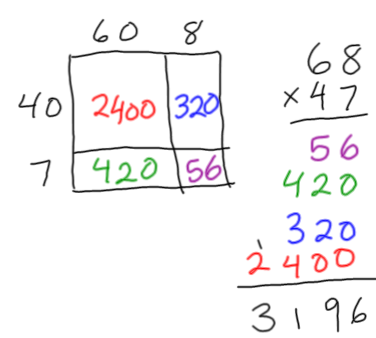 60 8
40 2400 320
7 420 56
68
×47
56
420
320
1
2400
3196